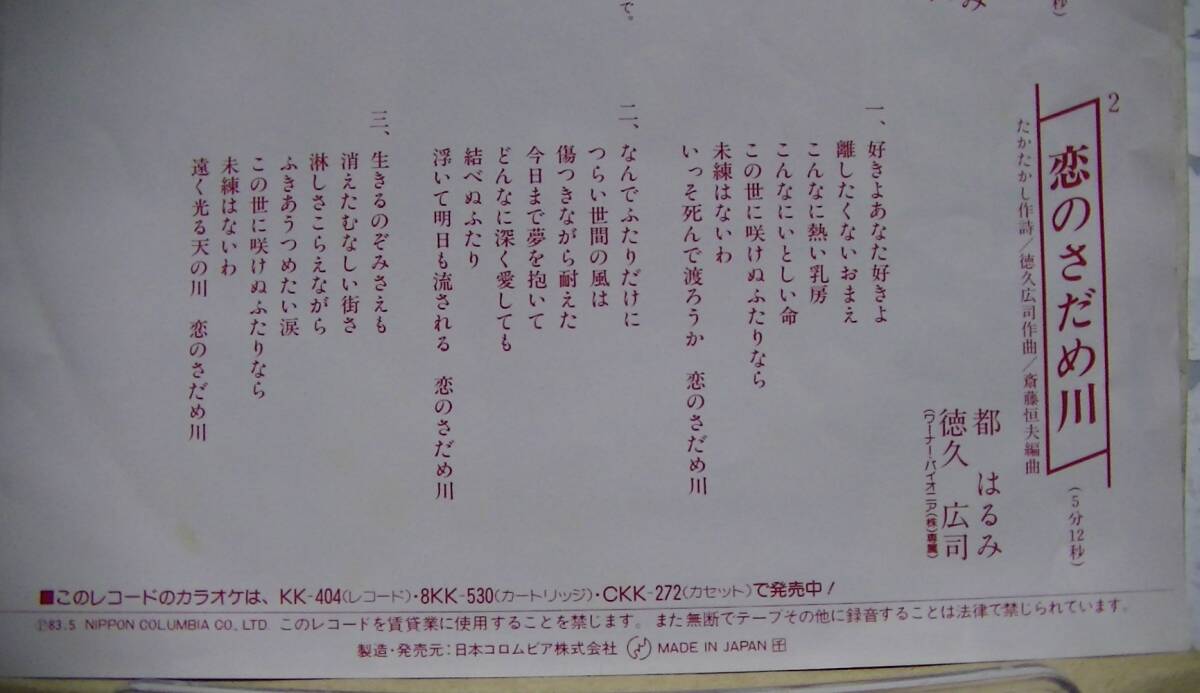 で。
み
秒)
2
恋のさだめ川
(5分12秒)
たかたかし作詩/徳久広司作曲/斎藤恒夫編曲
都 はるみ
徳久 広司
(ワーナー・パイオニア(株)専属)
一、好きよあなた好きよ
離したくないおまえ
こんなに熱い乳房
こんなにいとしい命
この世に咲けぬふたりなら
未練はないわ
いっそ死んで渡ろうか 恋のさだめ川
二、なんでふたりだけに
つらい世間の風は
傷つきながら耐えた
今日まで夢を抱いて
どんなに深く愛しても
結べぬふたり
浮いて明日も流される 恋のさだめ川
三、生きるのぞみさえも
消えたむなしい街さ
淋しさこらえながら
ふきあうつめたい涙
この世に咲けぬふたりなら
未練はないわ
遠く光る天の川 恋のさだめ川
■このレコードのカラオケは、KK-404(レコード)・8KK-530(カートリッジ)・CKK-272(カセット)で発売中!
Ⓟ83.5 NIPPON COLUMBIA CO., LTD. このレコードを賃貸業に使用することを禁じます。また無断でテープその他に録音することは法律で禁じられています。
製造・発売元:日本コロムビア株式会社 MADE IN JAPAN